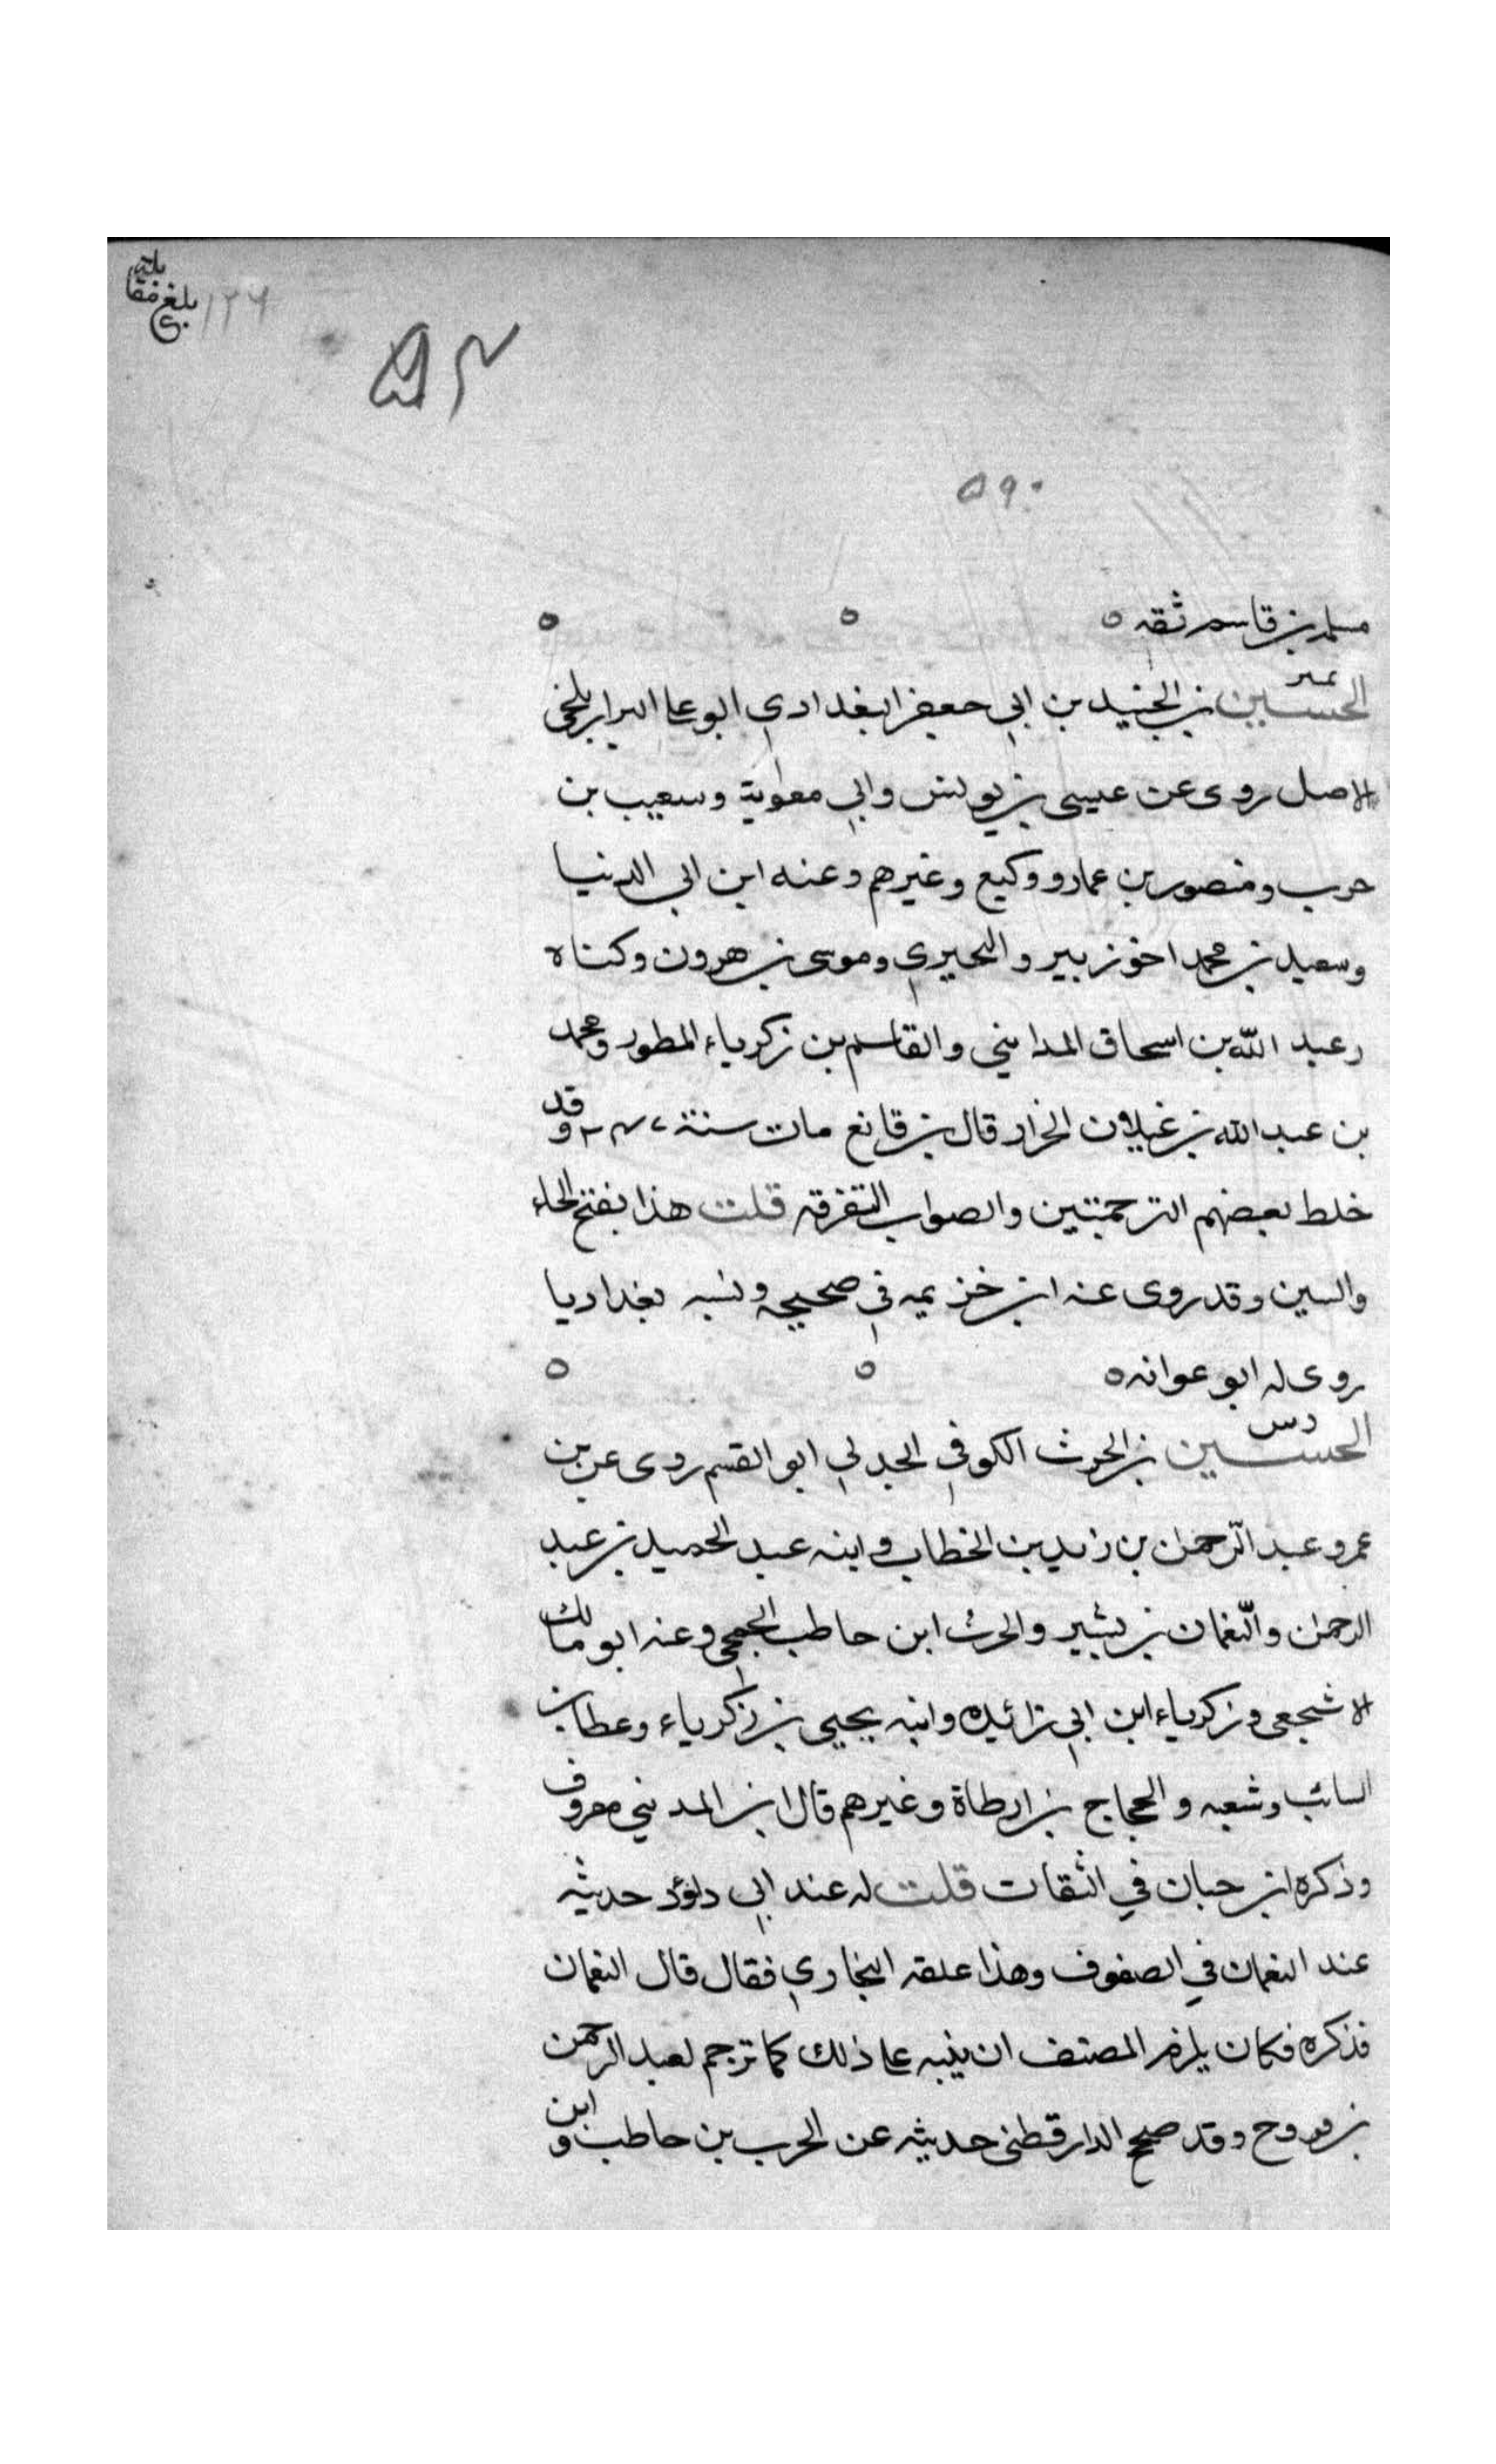 بلغ مقابلة
١٢٦
٥٩٠
مسلمه بن قاسم ثقه ٥ ٥ ٥
تمييز
الحسين بن الجنيد بن ابي جعفر البغدادي ابو علي البزار بلخي
الاصل روى عن عيسى بن يونس وابي معوية وسعيب بن
حرب ومنصور بن عمار ووكيع وغيرهم وعنه ابن ابي الدنيا
وسعيد بن محمد اخو زبير والبحيري وموسى بن هرون وكناه
وعبد الله بن اسحاق المدايني والقاسم بن زكرياء المطور ومحمد
بن عبد الله بن غيلان الخزاز قال بن قانع مات سنة ٢٤٧ وقد
خلط بعضهم الترجمتين والصواب التفرقه قلت هذا بفتح الحاء
والسين وقد روى عنه ابن خزيمه في صحيحه ونسبه بغداديا
روى له ابو عوانه ٥ ٥ ٥
د س
الحسين بن الحرث الكوفي الجدلي ابو القسم روى عن بن
عمر وعبد الرحمن بن زيد بن الخطاب وابنه عبد الحميد بن عبد
الرحمن والنعمان بن بشير والحرث ابن حاطب الجمحي وعنه ابو مالك
الاشجعي وزكرياء ابن ابي زائيده وابنه يحيى بن زكرياء وعطا بن
السائب وشعبه والحجاج بن ارطاة وغيرهم قال ابن المديني معروف
وذكره ابن حبان في الثقات قلت له عند ابي داؤد حديثه
عند النعمان في الصفوف وهذا علقه البخاري فقال قال النعمان
فذكره فكان يلزم المصنف ان ينبه على ذلك كما ترجم لعبد الرحمن
بن فروح وقد صحح الدارقطني حديثه عن الحرب بن حاطب وابن